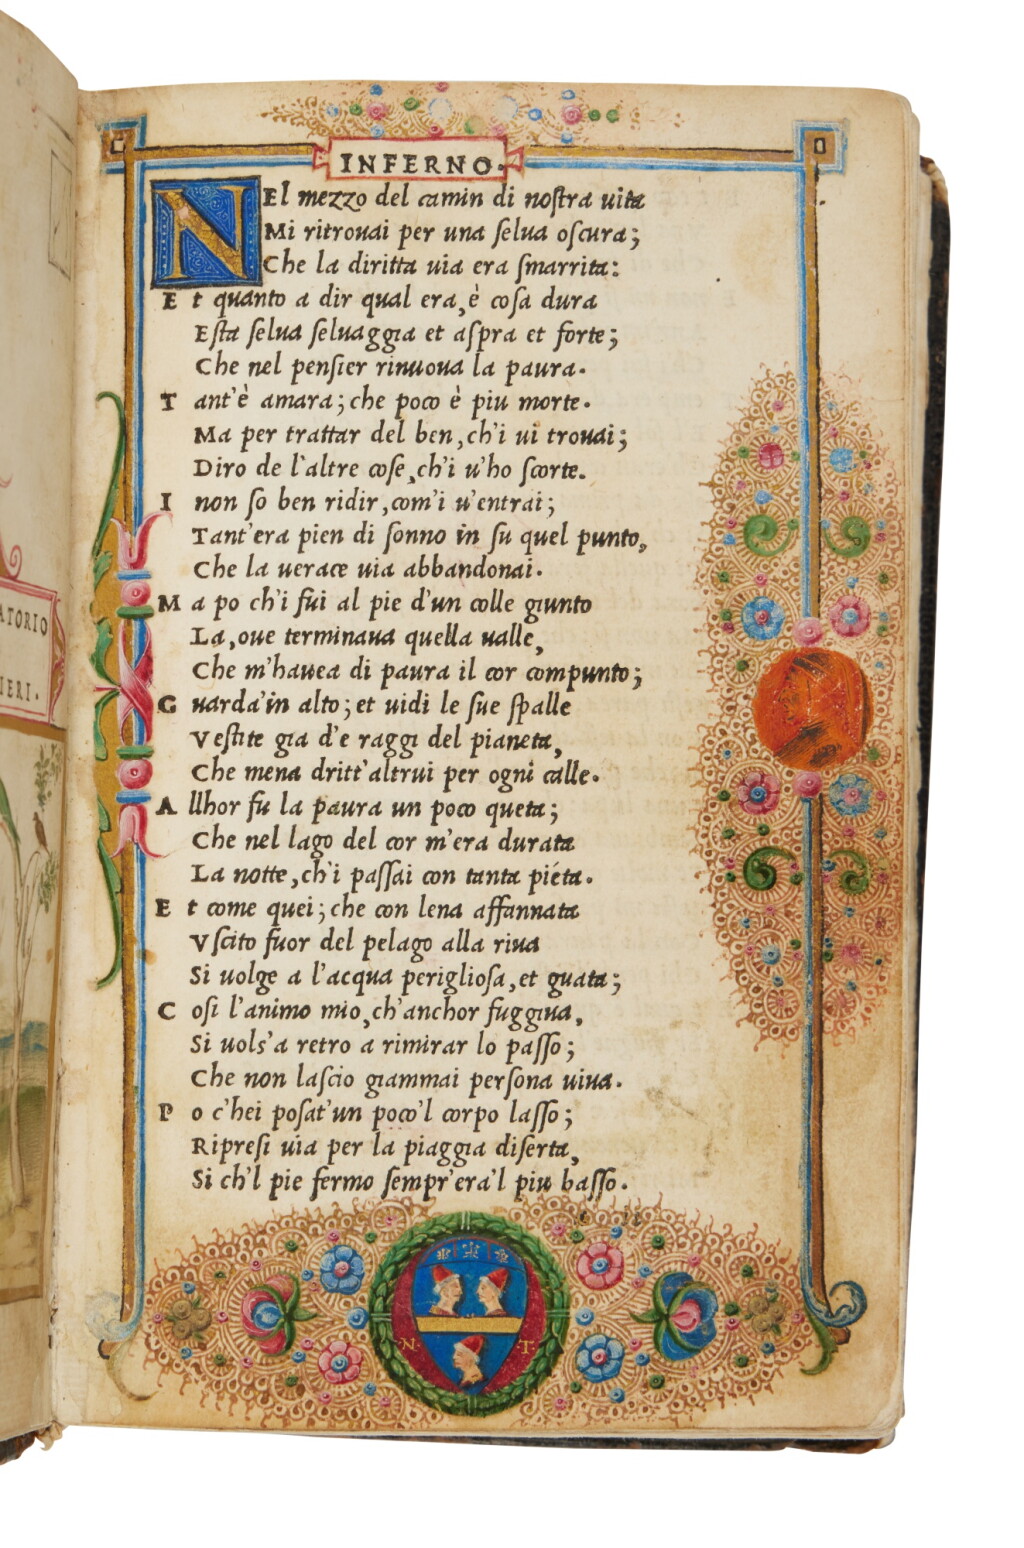 ATORIO
IERI.
INFERNO.
NEl mezzo del camin di nostra uita
Mi ritrouai per una ſelua oſcura;
Che la diritta uia era ſmarrita:
E t quanto a dir qual era, è coſa dura
Eſta ſelua ſeluaggia et aſpra et forte;
Che nel penſier rinuoua la paura.
T ant'è amara; che poco è piu morte.
Ma per trattar del ben, ch'i ui trouai;
Diro de l'altre coſe, ch'i u'ho ſcorte.
I non ſo ben ridir, com'i u'entrai;
Tant'era pien di ſonno in ſu quel punto,
Che la uerace uia abbandonai.
M a po ch'i fui al pie d'un colle giunto
La, oue terminaua quella ualle,
Che m'hauea di paura il cor compunto;
G uarda'in alto; et uidi le ſue ſpalle
Veſtite gia d'e raggi del pianeta,
Che mena dritt'altrui per ogni calle.
A llhor fu la paura un poco queta;
Che nel lago del cor m'era durata
La notte, ch'i paſſai con tanta piéta.
E t come quei; che con lena affannata
Vſcito fuor del pelago alla riua
Si uolge a l'acqua periglioſa, et guata;
C oſi l'animo mio, ch'anchor fuggiua,
Si uolſ'a retro a rimirar lo paſſo;
Che non laſcio giammai perſona uiua.
P o c'hei poſat'un poco'l corpo laſſo;
Ripreſi uia per la piaggia diſerta,
Si ch'l pie fermo ſempr'era'l piu baſſo.
N T